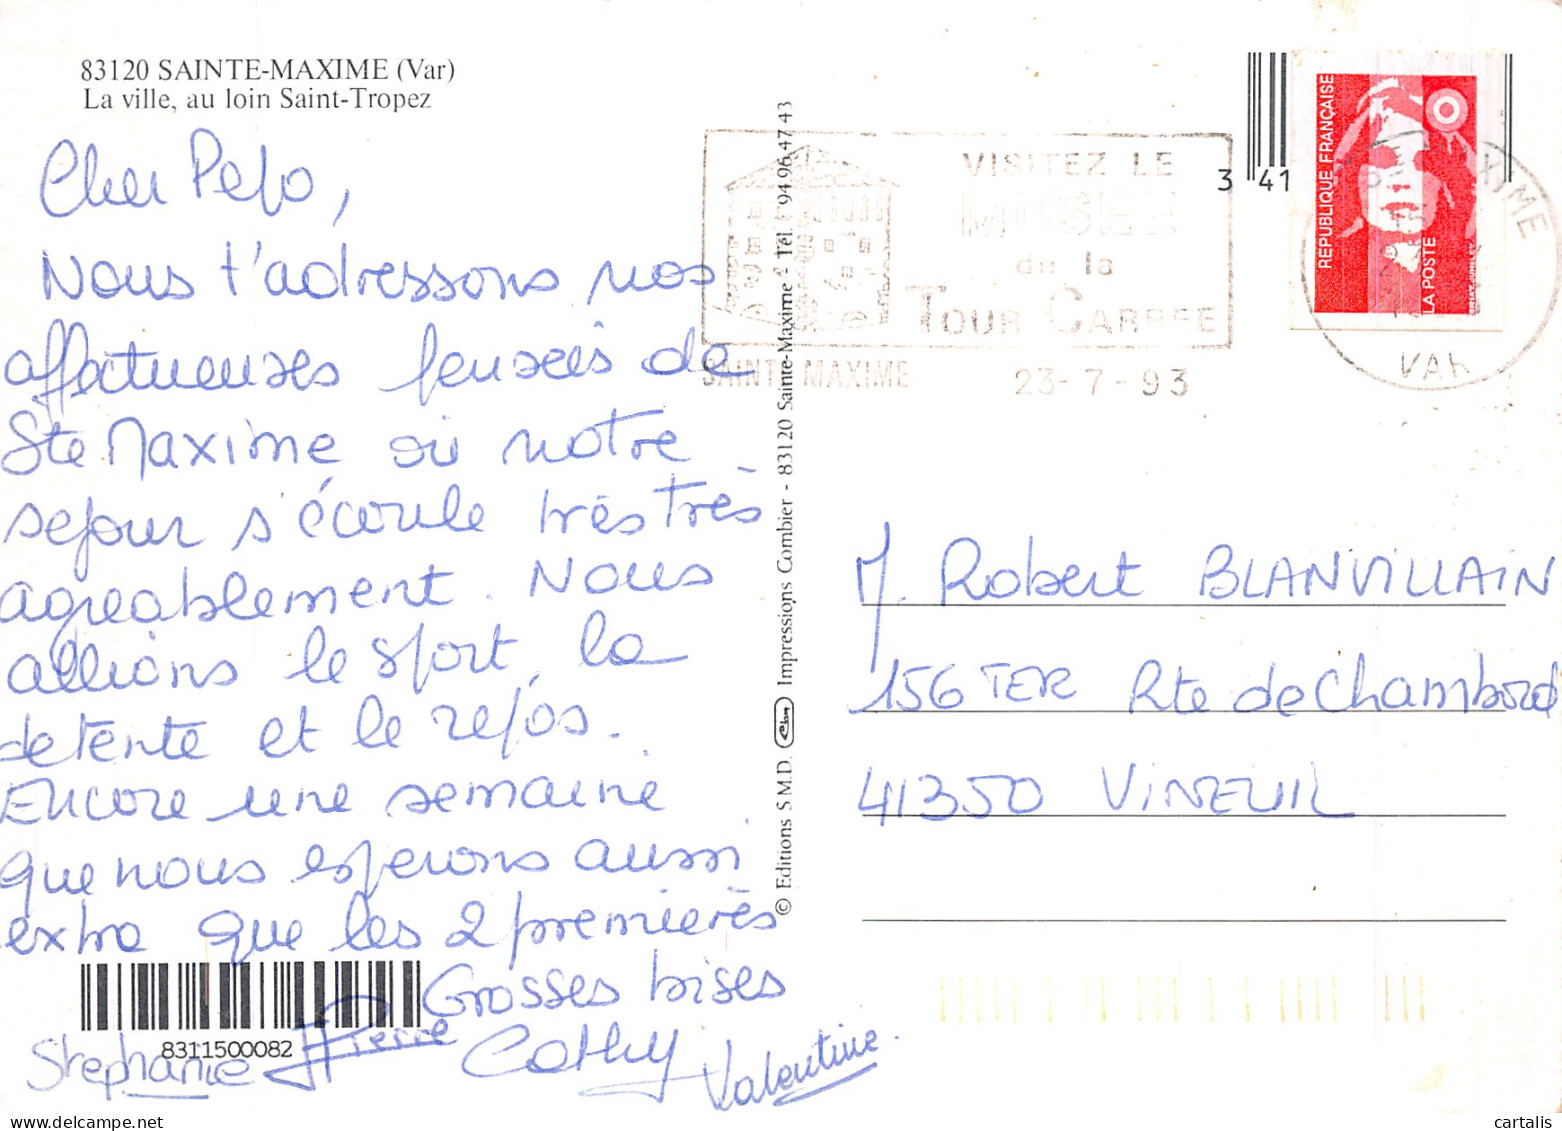 83120 SAINTE-MAXIME (Var)
La ville, au loin Saint-Tropez
Cher Pepo,
Nous t'adressons nos
affectueuses pensées de
Ste Maxime où notre
sejour s'écoule très très
agreablement. Nous
allions le sport, la
detente et le repos.
Encore une semaine
que nous esperons aussi
extra que les 2 premières
Grosses bises
Stephanie Pierre Cathy Valentine.
8311500082
© Editions S.M.D. Impressions Combier - 83120 Sainte-Maxime - Tél. 94 96 47 43
VISITEZ LE
MUSEE
de la
TOUR CARREE
SAINTE MAXIME 23-7-93
3 41
REPUBLIQUE FRANÇAISE
LA POSTE
XIME
VAR
M. Robert BLANVILLAIN
156 TER Rte de Chambord
41350 VINEUIL
delcampe.net
cartalis